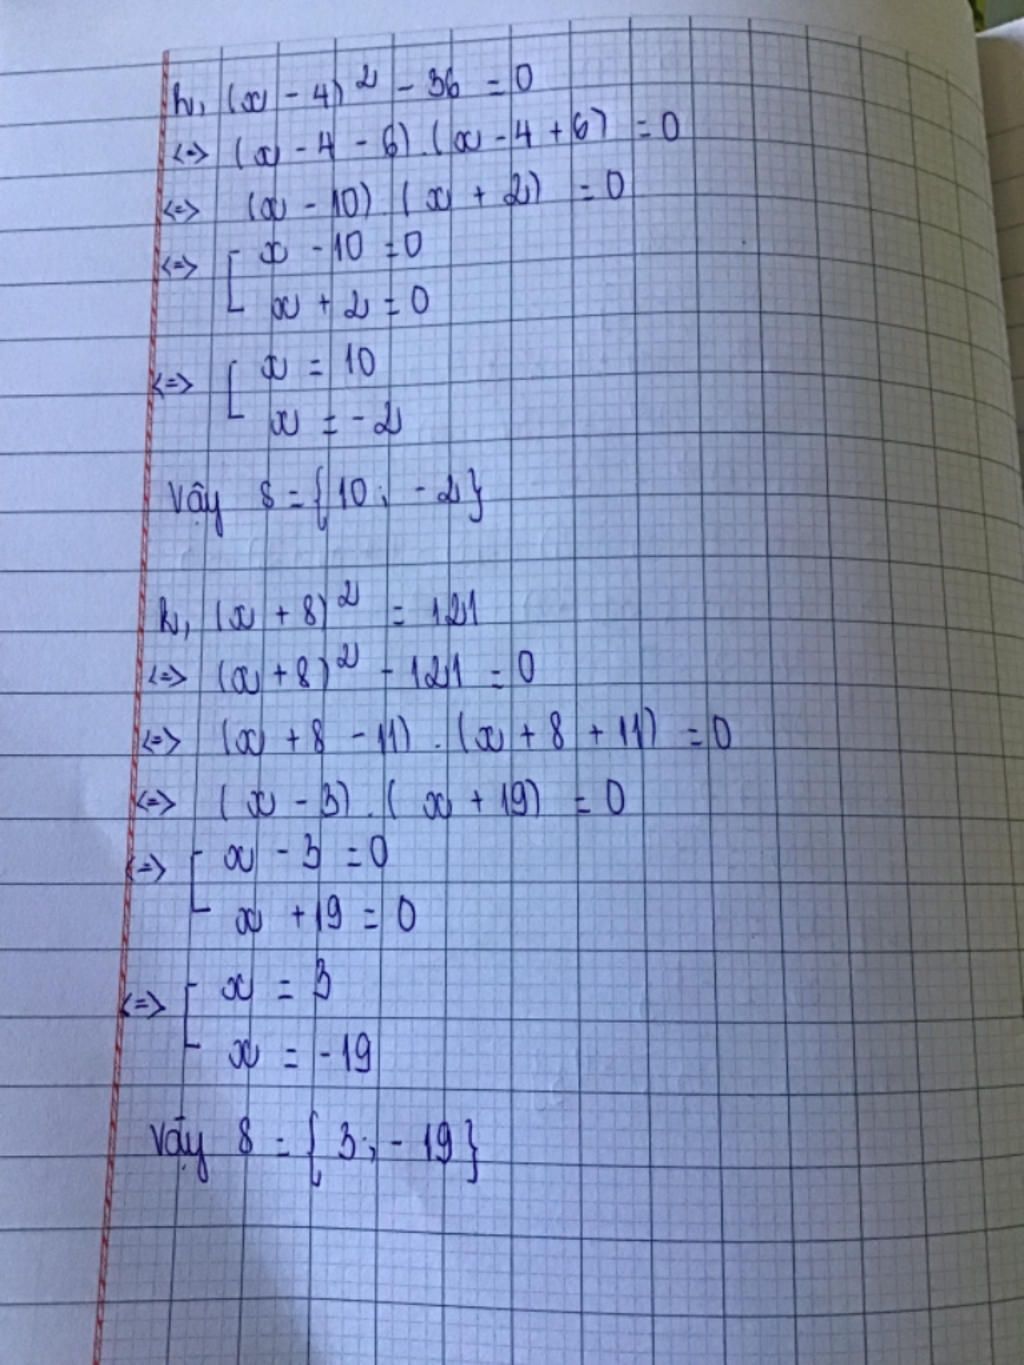 h, (x - 4)² - 36 = 0
<=> (x - 4 - 6).(x - 4 + 6) = 0
<=> (x - 10).(x + 2) = 0
<=> [ x - 10 = 0
x + 2 = 0
<=> [ x = 10
x = -2
Vậy S = {10; -2}
k, (x + 8)² = 121
<=> (x + 8)² - 121 = 0
<=> (x + 8 - 11).(x + 8 + 11) = 0
<=> (x - 3).(x + 19) = 0
<=> [ x - 3 = 0
x + 19 = 0
<=> [ x = 3
x = -19
Vậy S = {3; -19}